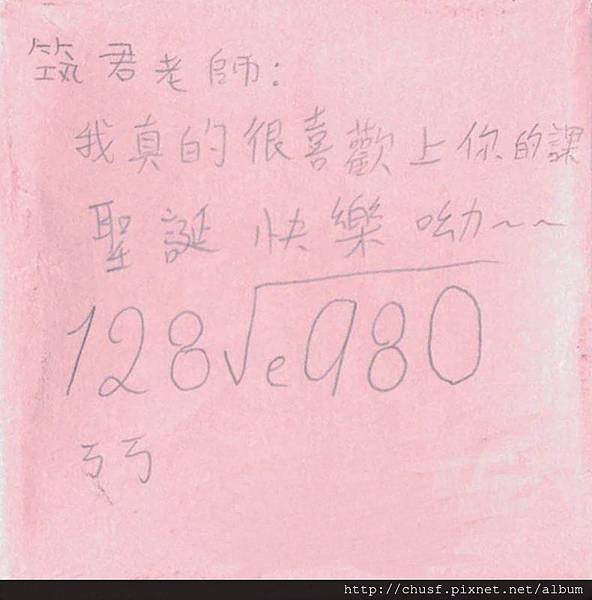 筑君老師：
我真的很喜歡上你的課
聖誕快樂呦～～
128√e980
ㄎㄎ
http://chusf.pixnet.net/album